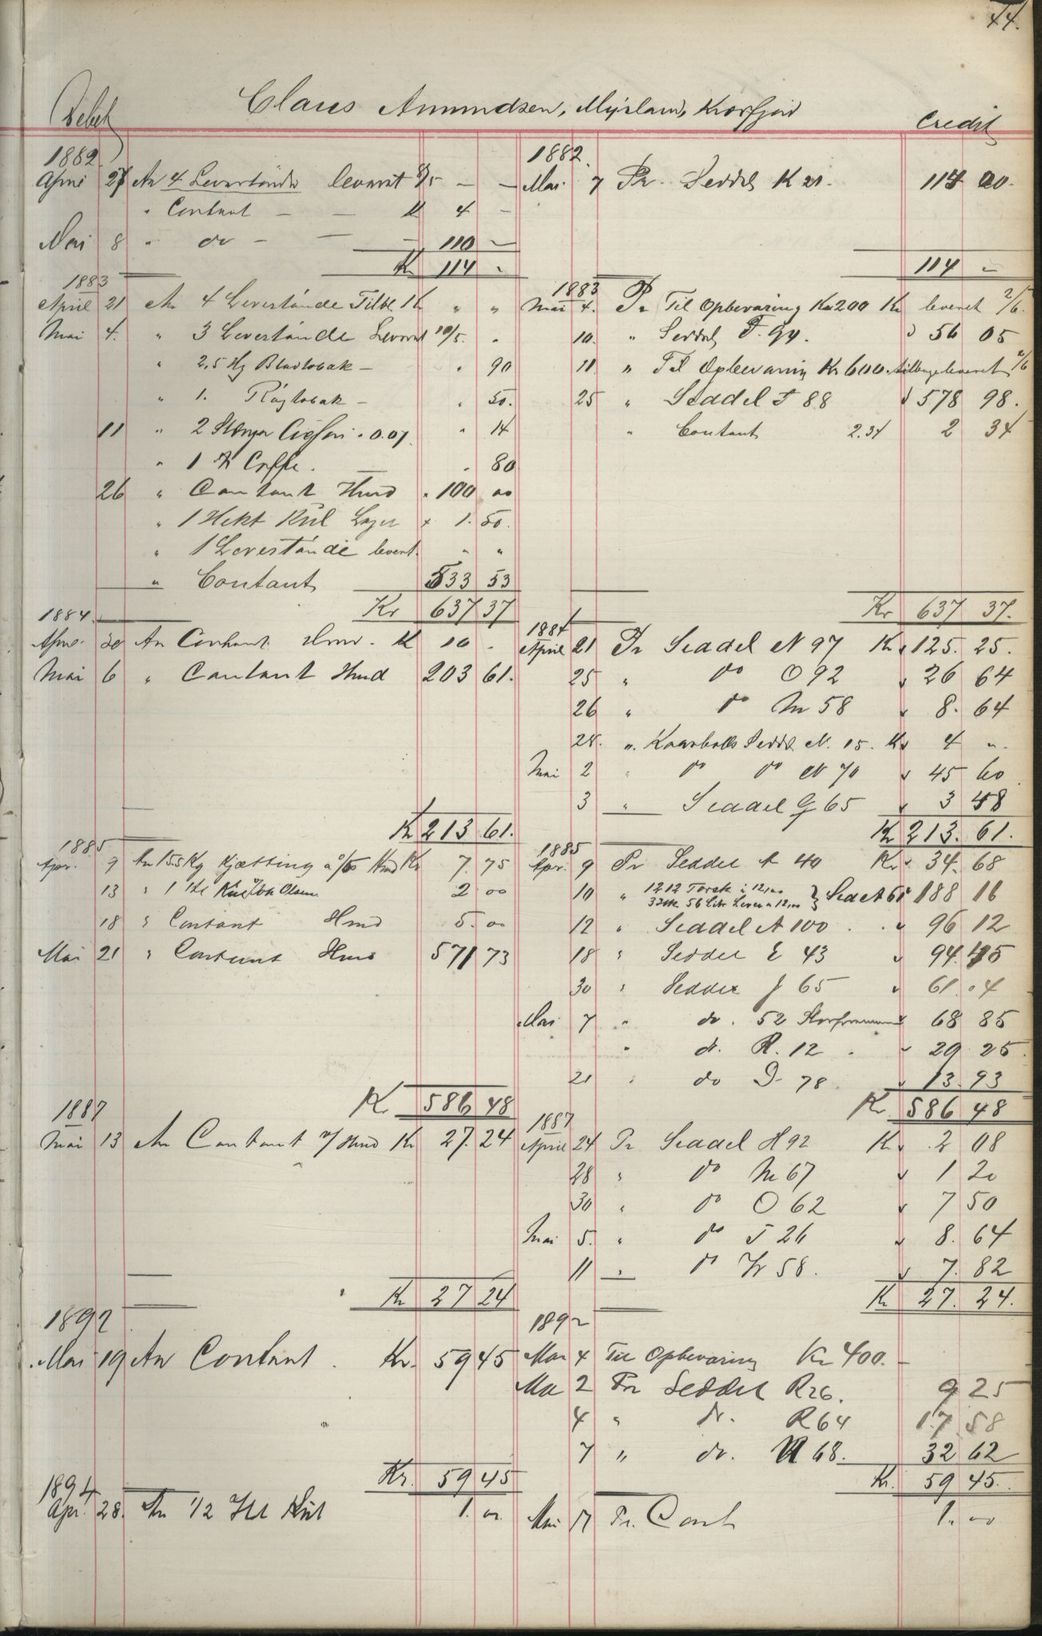 44.
Debet Claus Amundsen, Myrland, Kvæfjord Credit
1882.
April 27 An 4 Levertönder leveret 8/5 — —
" Contant — — K 4 —
Mai 8 " do — — 110 —
Kr 114 -
1882.
Mai 7 Pr Seddel K 21. 114 00.
114 -
1883
April 21 An 4 Levertönde " "
Mai 4. " 3 Levertönde Leveret 10/5. "
" 2,5 Hg Bladtobak — " 90
" 1. Røgtobak — " 50.
11 " 2 Cigari " 0.07 " 14
" 1 Caffe. — " 80
26 " Contant Hmd " 100 00
" 1 Hekt Kul 1. 50.
" 1 Levertönde levert. " "
" Contant 533 53
Kr 637 37
1883
Mai 4. Pr Til Opbevaring Kr 200 Kr leveret 2/6.
10. " Seddel F. 94. " 56 05
11 " Til Opbevaring Kr 600. tilbageleveret 2/6
25 " Seddel F 88 " 578 98.
" Contant 2.34 2 34
Kr 637 37.
1884
April 30 An Contant Hmd K 10 .
Mai 6 " Contant Hmd 203 61.
Kr 213 61.
1884
April 21 Pr Seddel N 97 Kr 125. 25.
25 " do O 92 " 26 64
26 " do M 58 " 8. 64
28. " Seddel N. 15. Kr 4 ".
Mai 2 " do do N 70 " 45 60
3 " Seddel G 65 " 3 48
Kr 213. 61.
1885
Apr. 9 An 155 Kg Kjætting Hmd Kr 7. 75
13 " 1 Olsen 2 00
18 " Contant Hmd 5. 00
Mai 21 " Contant Hmd 571 73
K 586 48
1885
Apr. 9 Pr Seddel A 40 Kr 34. 68
10 " 1212 Torsk 188 16
12 " Seddel A 100 . " 96 12
18 " Seddel E 43 " 94. 45
30 " Seddel J 65 " 61. 04
Mai 7 " do. 52 68 85
" do. R. 12 . " 29 25.
21 " do D. 78. " 13. 93
Kr 586 48
1887
Mai 13 An Contant v/ Hmd Kr 27. 24
Kr 27 24
1887
April 24 Pr Seddel H 92 Kr 2 08
28 " do M 67 " 1 20
30 " do O 62 " 7 50
Mai 5. " do J 26 " 8. 64
11 " do 58. " 7. 82
Kr 27. 24.
1892
Mai 19 An Contant . Kr. 59 45
Kr. 59 45
1892
Mai 4 Til Opbevaring Kr 400. —
Mai 2 Pr Seddel R 26. 9 25
4 " do. R 64 17 58
7 " do. 68. 32 62
Kr. 59 45.
1894
Apr. 28. An 1/2 Hl Kul 1. 00
Mai 17 Pr. Cont 1. 00